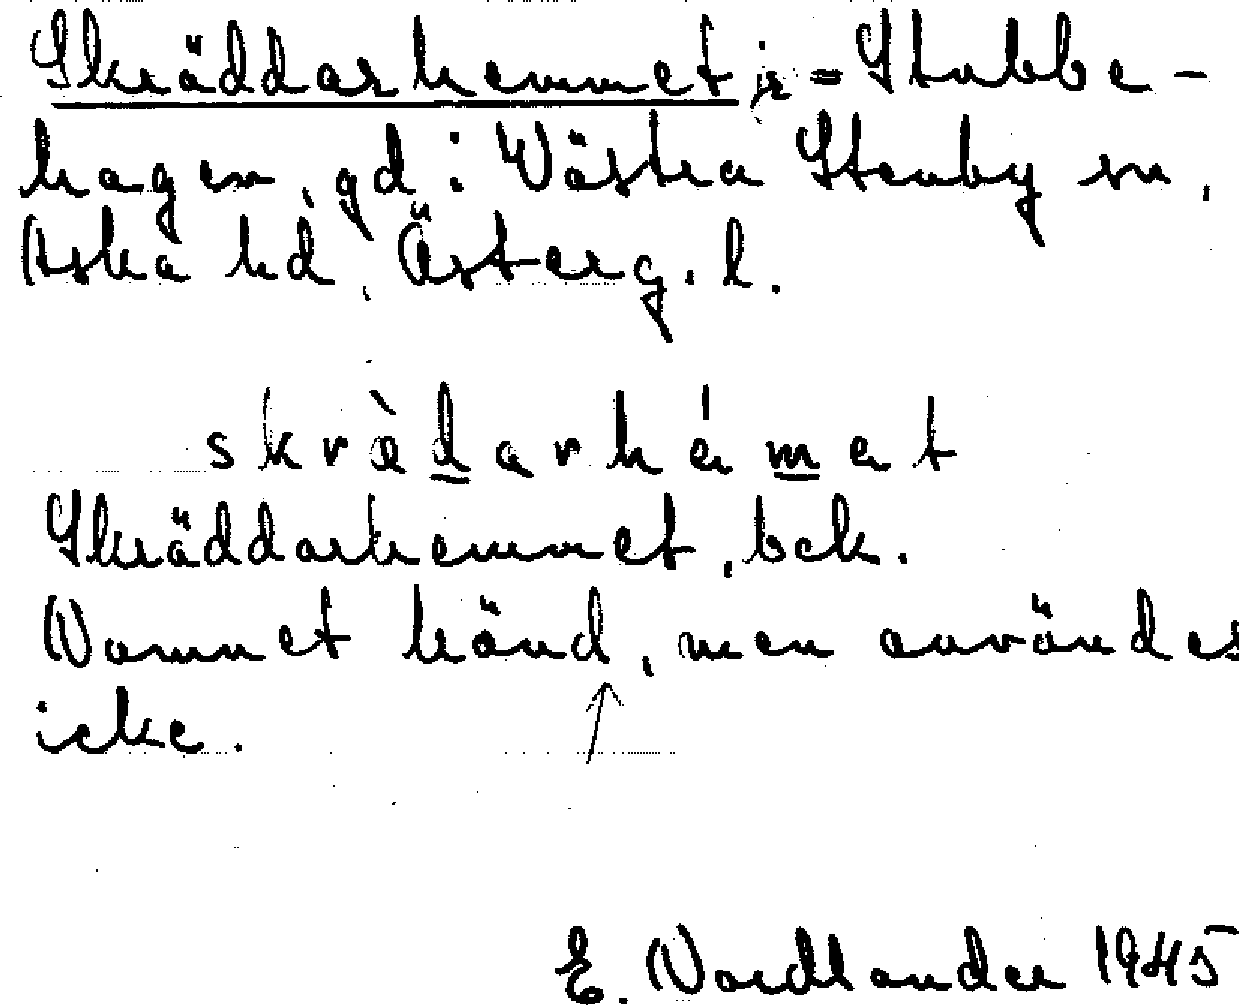 Skräddarhemmet = Stubbe-
hagen, gd i Västra Stenby sn,
Aska hd, Österg. l.
skrä̀darhémet
Skräddarhemmet, bek.
Namnet känd, men användes
icke.
E. Nordlander 1945